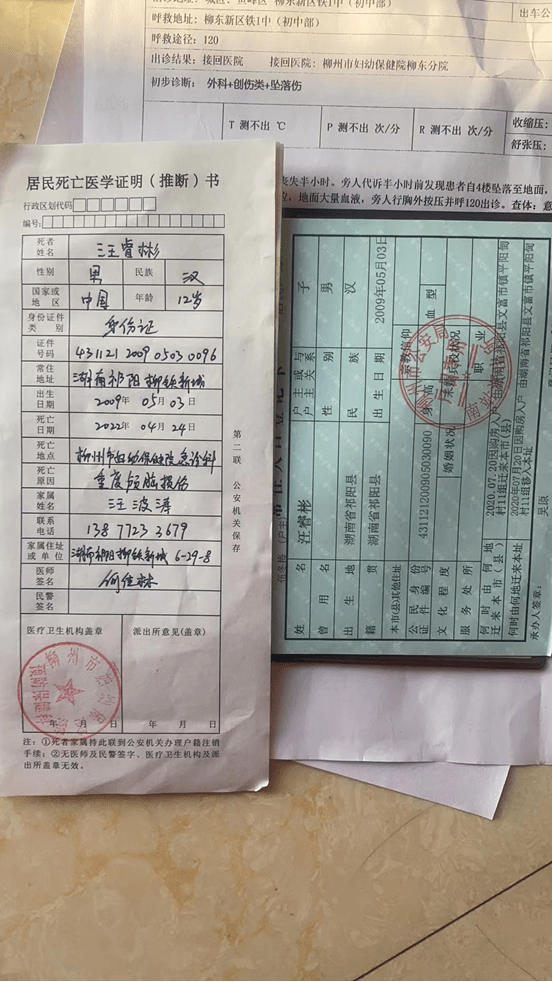 柳东新区铁1中(初中部)
出车公
呼救地址: 柳东新区铁1中(初中部)
呼救途径: 120
出诊结果: 接回医院 接回医院: 柳州市妇幼保健院柳东分院
初步诊断: 外科+创伤类+坠落伤
T 测不出 ℃
P 测不出 次/分
R 测不出 次/分
收缩压:
舒张压:
丧失半小时。旁人代诉半小时前发现患者自4楼坠落至地面,
地面大量血液,旁人行胸外按压并呼120出诊。查体:意
居民死亡医学证明(推断)书
行政区划代码
编号:
死者姓名 汪睿彬
性别 男 民族 汉
国家或地区 中国 年龄 12岁
身份证件类别 身份证
证件号码 431121 2009 0503 0096
常住地址 湖南祁阳 柳铁新城
出生日期 2009年 05月 03日
死亡日期 2022年 04月 24日
死亡地点 柳州市妇幼保健院急诊科
死亡原因 重度颅脑损伤
家属姓名 汪波涛
联系电话 138 7723 3679
家属住址或单位 湖南祁阳柳铁新城 6-29-8
医师签名 何佳林
民警签名
医疗卫生机构盖章
派出所意见(盖章)
年 月 日
年 月 日
注:①死者家属持此联到公安机关办理户籍注销
手续;②无医师及民警签字、医疗卫生机构及派
出所盖章无效。
第二联 公安机关保存
姓名 汪睿彬
户主或与户主关系 子
曾用名
性别 男
出生地 湖南省祁阳县
民族 汉
籍贯 湖南省祁阳县
出生日期 2009年05月03日
本市(县)其他住址
宗教信仰
公民身份证件编号 431121200905030090
身高
血型
文化程度
婚姻状况
兵役状况
服务处所
职业
何时由何地迁来本市(县) 2020.07.20因购房入户 由湖南省祁阳县文富市镇平阳甸村11组迁来本市(县)
何时由何地迁来本址 2020年07月20日因购房入户 由湖南省祁阳县文富市镇平阳甸村11组移入本址
承办人签章: